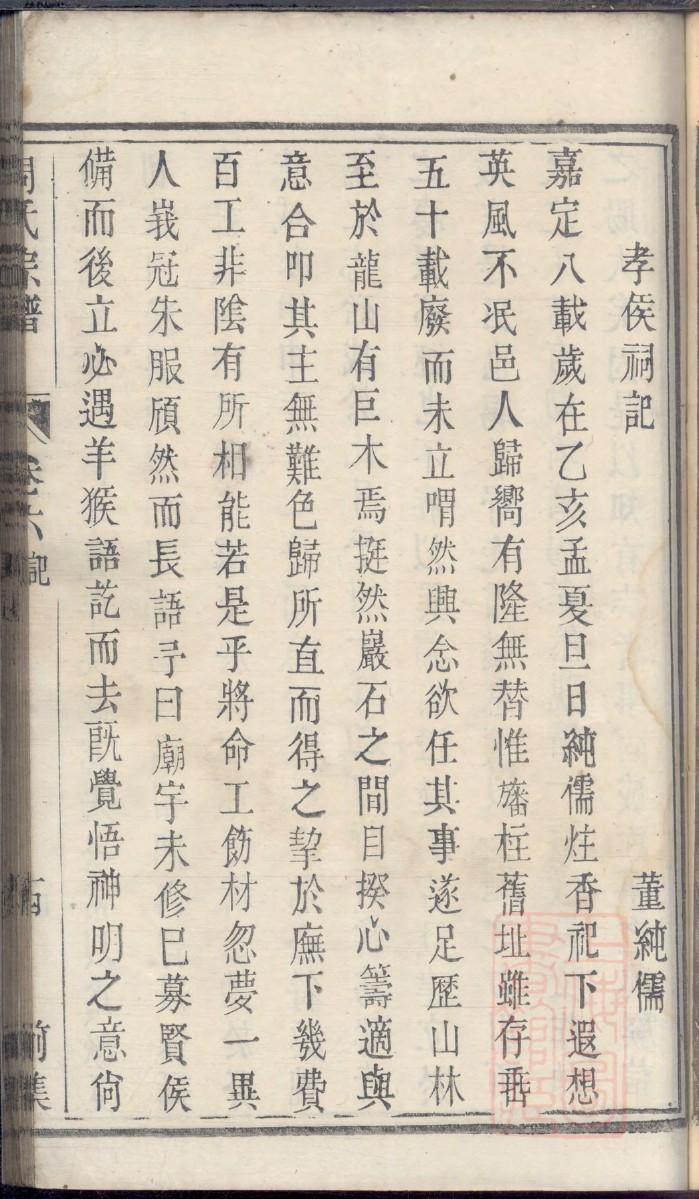 孝侯祠記
董純儒
嘉定八載歲在乙亥孟夏旦日純儒炷香祀下遐想
英風不泯邑人歸嚮有隆無替惟旛柱舊址雖存垂
五十載廢而未立喟然興念欲任其事遂足歷山林
至於龍山有巨木焉挺然巖石之間目揆心籌適與
意合叩其主無難色歸所直而得之挈於廡下幾費
百工非陰有所相能若是乎將命工飭材忽夢一異
人峩冠朱服頎然而長語予曰廟宇未修巳募賢侯
備而後立必遇羊猴語訖而去旣覺悟神明之意尙
周氏宗譜
卷六
記
前集